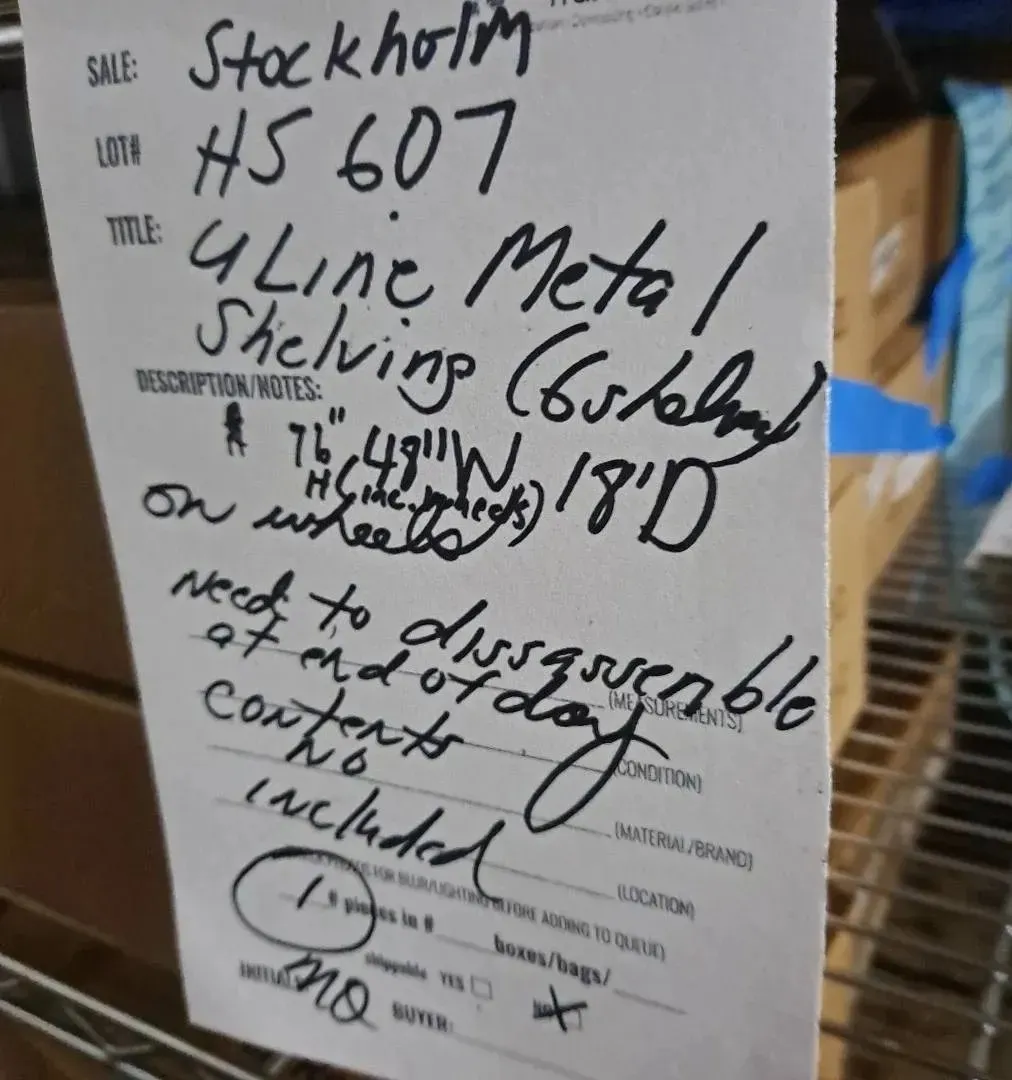 SALE: Stockholm
LOT# HS 607
TITLE: ULine Metal
Shelving (6 shelves)
DESCRIPTION/NOTES:
76" 48"W 18'D
H (inc. wheels)
on wheels
Need to dissassemble
at end of day
(MEASUREMENTS)
Contents
(CONDITION)
NO
(MATERIAL/BRAND)
included
(LOCATION)
FOR BLUR/LIGHTING BEFORE ADDING TO QUEUE)
1 # pieces in # boxes/bags/
shippable YES NO
INITIALS MQ BUYER: